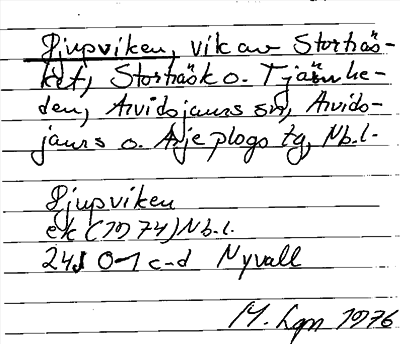 Djupviken, vik av Storträs-
ket, Storträsk o. Tjärnhe-
den, Arvidsjaurs sn, Arvids-
jaurs o. Arjeplogs tg, Nb.l.
Djupviken
ek (1974) Nb.l.
24J 0-1 c-d Nyvall
M. Lgn 1976